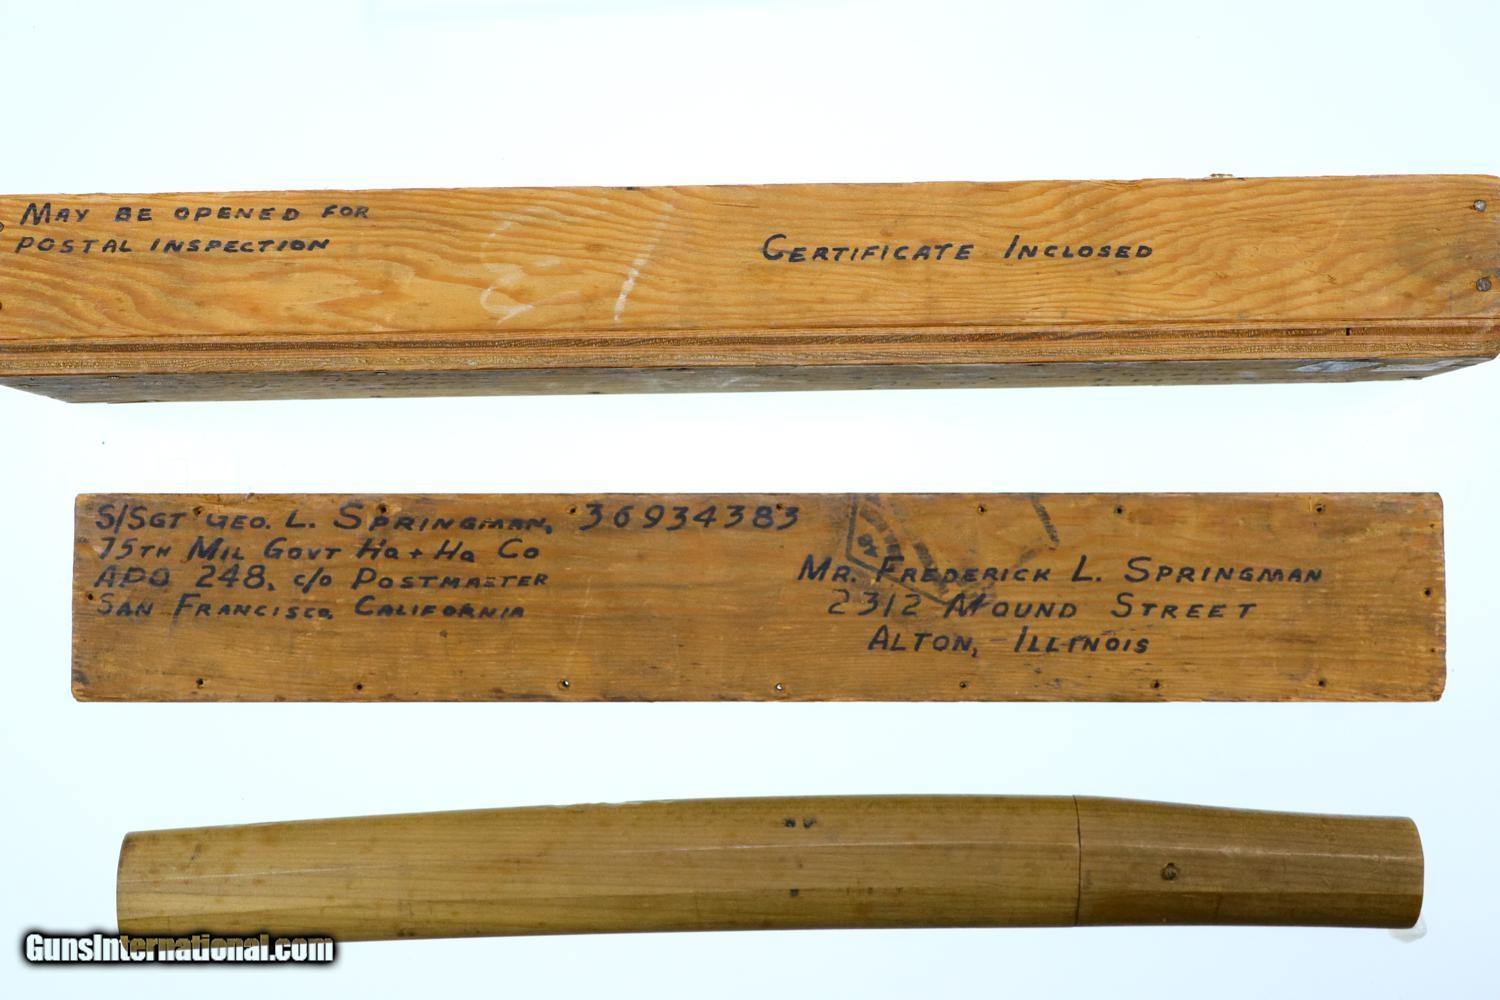 MAY BE OPENED FOR
POSTAL INSPECTION
CERTIFICATE INCLOSED
S/SGT GEO. L. SPRINGMAN, 36934383
75TH MIL GOVT HQ + HQ CO
APO 248, c/o POSTMASTER
SAN FRANCISCO, CALIFORNIA
MR. FREDERICK L. SPRINGMAN
2312 MOUND STREET
ALTON, ILLINOIS
GunsInternational.com